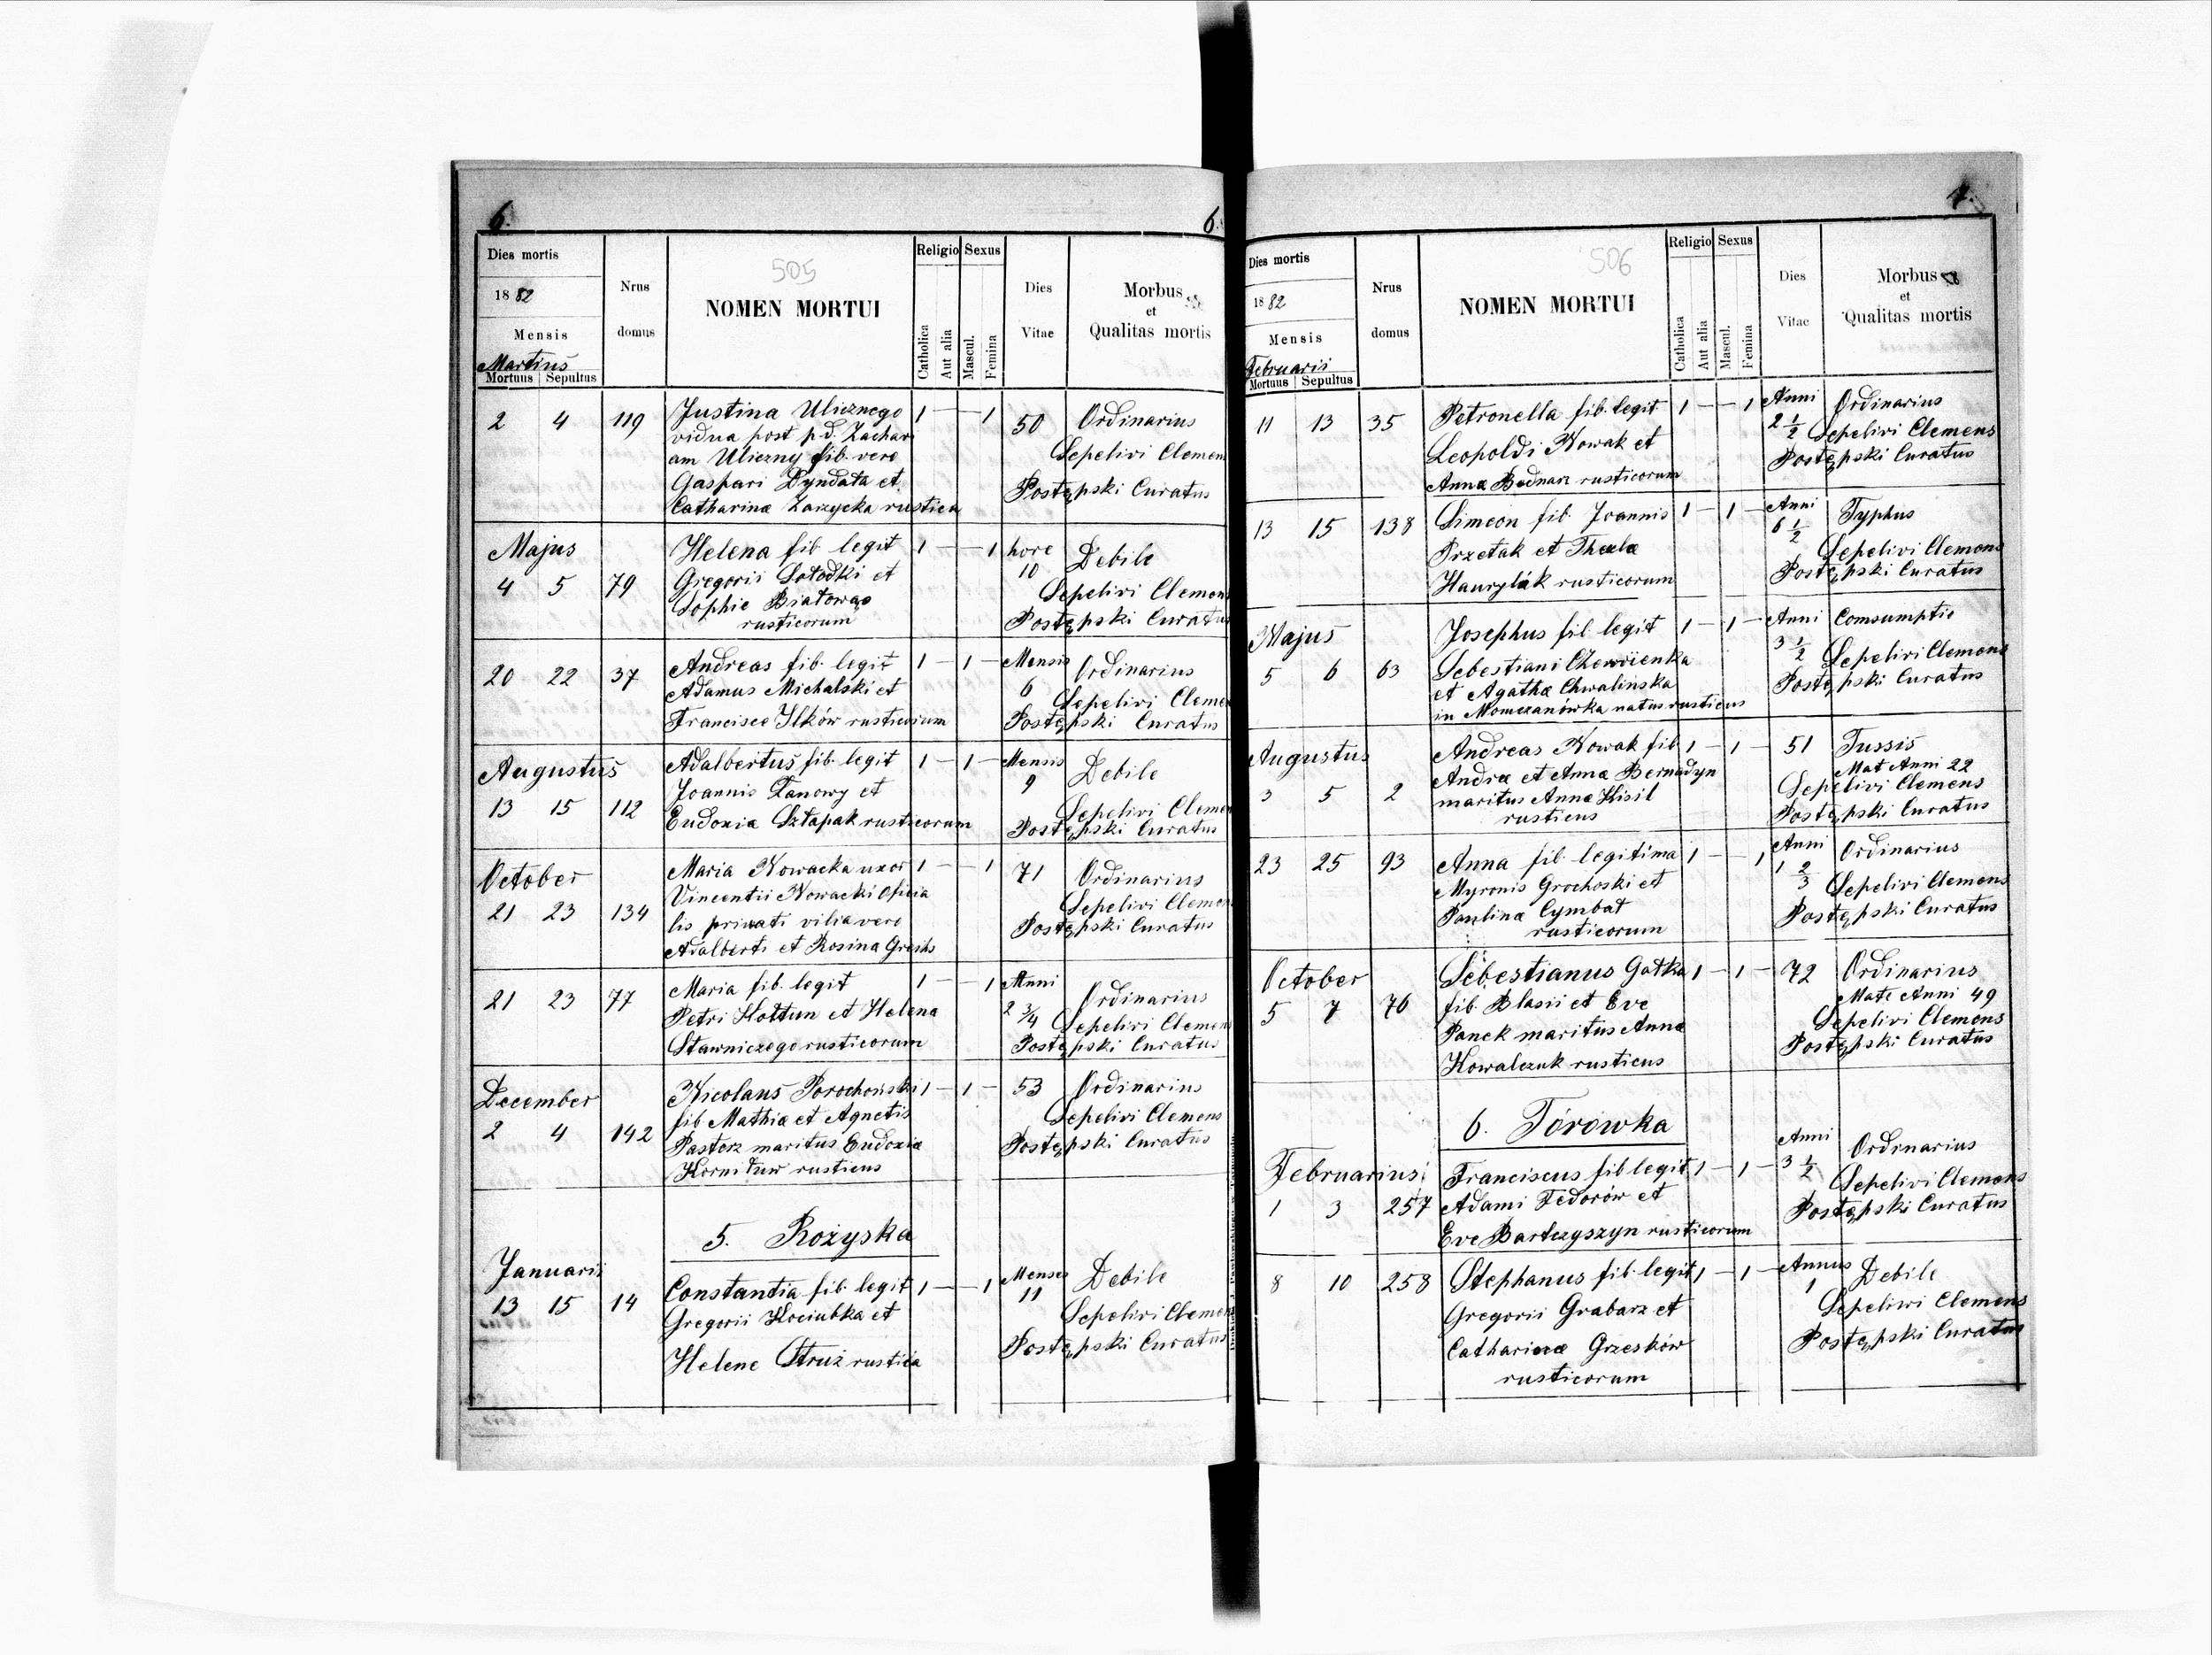 6.
6.
Dies mortis
1882
Mensis
Martius
Mortuus Sepultus
Nrus
domus
505
NOMEN MORTUI
Religio Sexus
Catholica
Aut alia
Mascul.
Femina
Dies
Vitae
Morbus
et
Qualitas mortis
2 4 119 Justina Ulicznego 1 — — 1 50 Ordinarius
vidua post p.d. Zachari
am Uliczny fib. vere
Sepelivi Clemen
Gaspari Dyndata et
Postępski Curatus
Catharinæ Zarzycka rustica
Majus
Helena fib legit 1 — — 1 hore
10 Debile
4 5 79 Gregorii Sołodki et
Sophie Białowąs
Sepelivi Clemen
rusticorum
Postępski Curatus
20 22 37 Andreas fib. legit 1 — 1 — Mensis
6 Ordinarius
Adamus Michalski et
Sepelivi Clemen
Francisce Ilków rusticorum
Postępski Curatus
Augustus
Adalbertus fib. legit 1 — 1 — Mensis
9 Debile
Joannis Łanowy et
13 15 112 Eudoxia Szłapak rusticorum
Sepelivi Clemen
Postępski Curatus
October
Maria Nowacka uxor 1 — 1 71 Ordinarius
Vincentii Nowacki Oficia
21 23 134 lis privati vilia vere
Sepelivi Clemen
Adalberti et Rosina
Postępski Curatus
21 23 77 Maria fib. legit 1 — 1 Anni
2 3/4 Ordinarius
Petri Kottun et Helena
Sepelivi Clemen
Stawniczego rusticorum
Postępski Curatus
December
Nicolaus Porochoński 1 — 1 — 53 Ordinarius
fib Mathiæ et Agnetis
Sepelivi Clemens
2 4 142 Pastorz maritus Eudoxia
Postępski Curatus
rusticus
5. Rożyska
Januarii
13 15 14 Constantia fib. legit 1 — 1 Menses
11 Debile
Gregorii Kociubka et
Sepelivi Clemen
Helene Struż rustica
Postępski Curatus
7.
Dies mortis
1882
Mensis
Februaris
Mortuus Sepultus
Nrus
domus
506
NOMEN MORTUI
Religio Sexus
Catholica
Aut alia
Mascul.
Femina
Dies
Vitae
Morbus
et
Qualitas mortis
11 13 35 Petronella fib. legit 1 — — 1 Anni
2 1/2 Ordinarius
Leopoldi Nowak et
Sepelivi Clemens
Annæ Bednarz rusticorum
Postępski Curatus
13 15 138 Simeon fib. Joannis 1 — 1 — Anni
6 1/2 Typhus
Przetak et Theclæ
Sepelivi Clemens
Hawrylak rusticorum
Postępski Curatus
Majus
Josephus fil legit 1 — 1 — Anni
3 1/2 Comsumptio
5 6 63 Sebestiani
Sepelivi Clemens
et Agathæ Chwalinska
Postępski Curatus
in Momczanówka natus rusticus
Augustus
Andreas Nowak fib 1 — 1 — 51 Tussis
Andræ et Annæ Bernadyn
Mat Anni 22
3 5 2 maritus Annæ Kisil
Sepelivi Clemens
rusticus
Postępski Curatus
23 25 93 Anna fib. legitima 1 — 1 Anni
1 2/3 Ordinarius
Myronis Grochoski et
Sepelivi Clemens
Paulinæ Cymbał
rusticorum
Postępski Curatus
October
Sebestianus Gałka 1 — 1 — 72 Ordinarius
5 7 76 fib. Blasii et Eve
Mate Anni 49
Panek maritus Annæ
Sepelivi Clemens
Kowalczuk rusticus
Postępski Curatus
6. Torówka
Februarius
Franciscus fib legit 1 — 1 — Anni
3 1/2 Ordrnarius
1 3 257 Adami Fedorów et
Sepelivi Clemens
Eve Bartczyszyn rusticorum
Postępski Curatus
8 10 258 Stephanus fib. legit 1 — 1 — Annus
1 Debile
Gregorii Grabarz et
Sepeliwi Clemens
Catharinæ Grzesków
rusticorum
Postępski Curatus